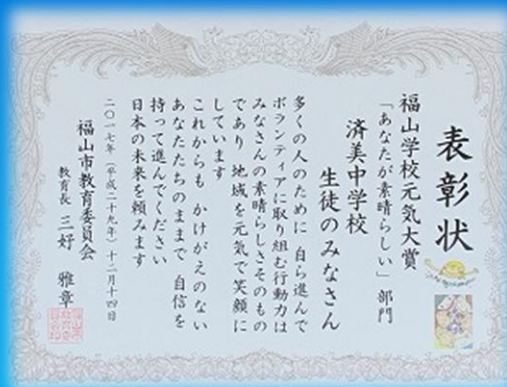 表彰状
福山学校元気大賞
「あなたが素晴らしい」部門
済美中学校
生徒のみなさん
多くの人のために 自ら進んで
ボランティアに取り組む行動力は
みなさんの素晴らしさそのもの
であり 地域を元気で笑顔に
しています
これからも かけがえのない
あなたたちのままで 自信を
持って進んでください
日本の未来を頼みます
二〇一七年(平成二十九年)十二月十四日
福山市教育委員会
教育長 三好 雅章